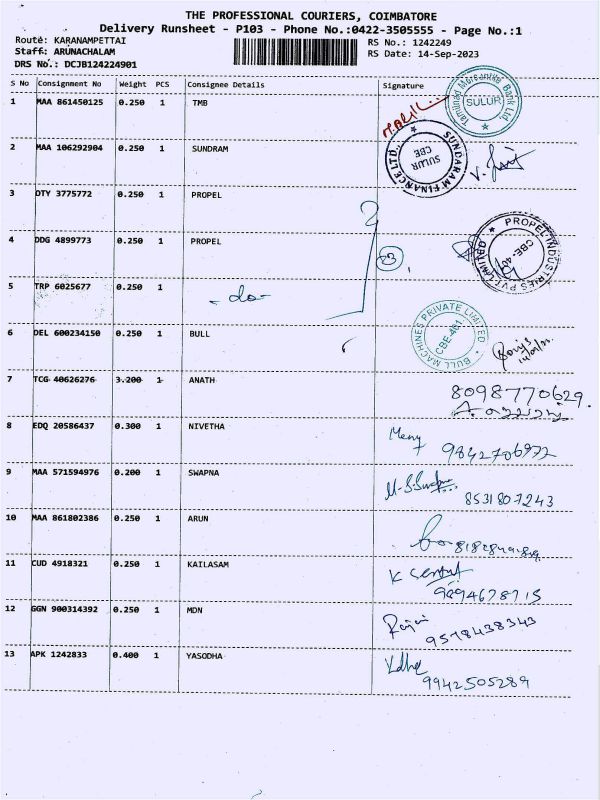 THE PROFESSIONAL COURIERS, COIMBATORE
Delivery Runsheet - P103 - Phone No.:0422-3505555 - Page No.:1
Route: KARANAMPETTAI RS No.: 1242249
Staff: ARUNACHALAM RS Date: 14-Sep-2023
DRS No.: DCJB124224901
S No Consignment No Weight PCS Consignee Details Signature
1 MAA 861450125 0.250 1 TMB
Tamilnad Mercantile Bank Ltd. SULUR
2 MAA 106292904 0.250 1 SUNDRAM
SUNDARAM FINANCE LTD., SULUR CBE
3 DTY 3775772 0.250 1 PROPEL
4 DDG 4899773 0.250 1 PROPEL
3
PROPEL INDUSTRIES PVT LIMITED
5 TRP 6025677 0.250 1 -do-
6 DEL 600234150 0.250 1 BULL
BULL MACHINES PRIVATE LIMITED
7 TCG 40626276 3.200 1 ANATH
8098770629.
8 EDQ 20586437 0.300 1 NIVETHA
9842706972
9 MAA 571594976 0.200 1 SWAPNA
8531807243
10 MAA 861802386 0.250 1 ARUN
11 CUD 4918321 0.250 1 KAILASAM
9894678715
12 GGN 900314392 0.250 1 MDN
9578438343
13 APK 1242833 0.400 1 YASODHA
9942505289